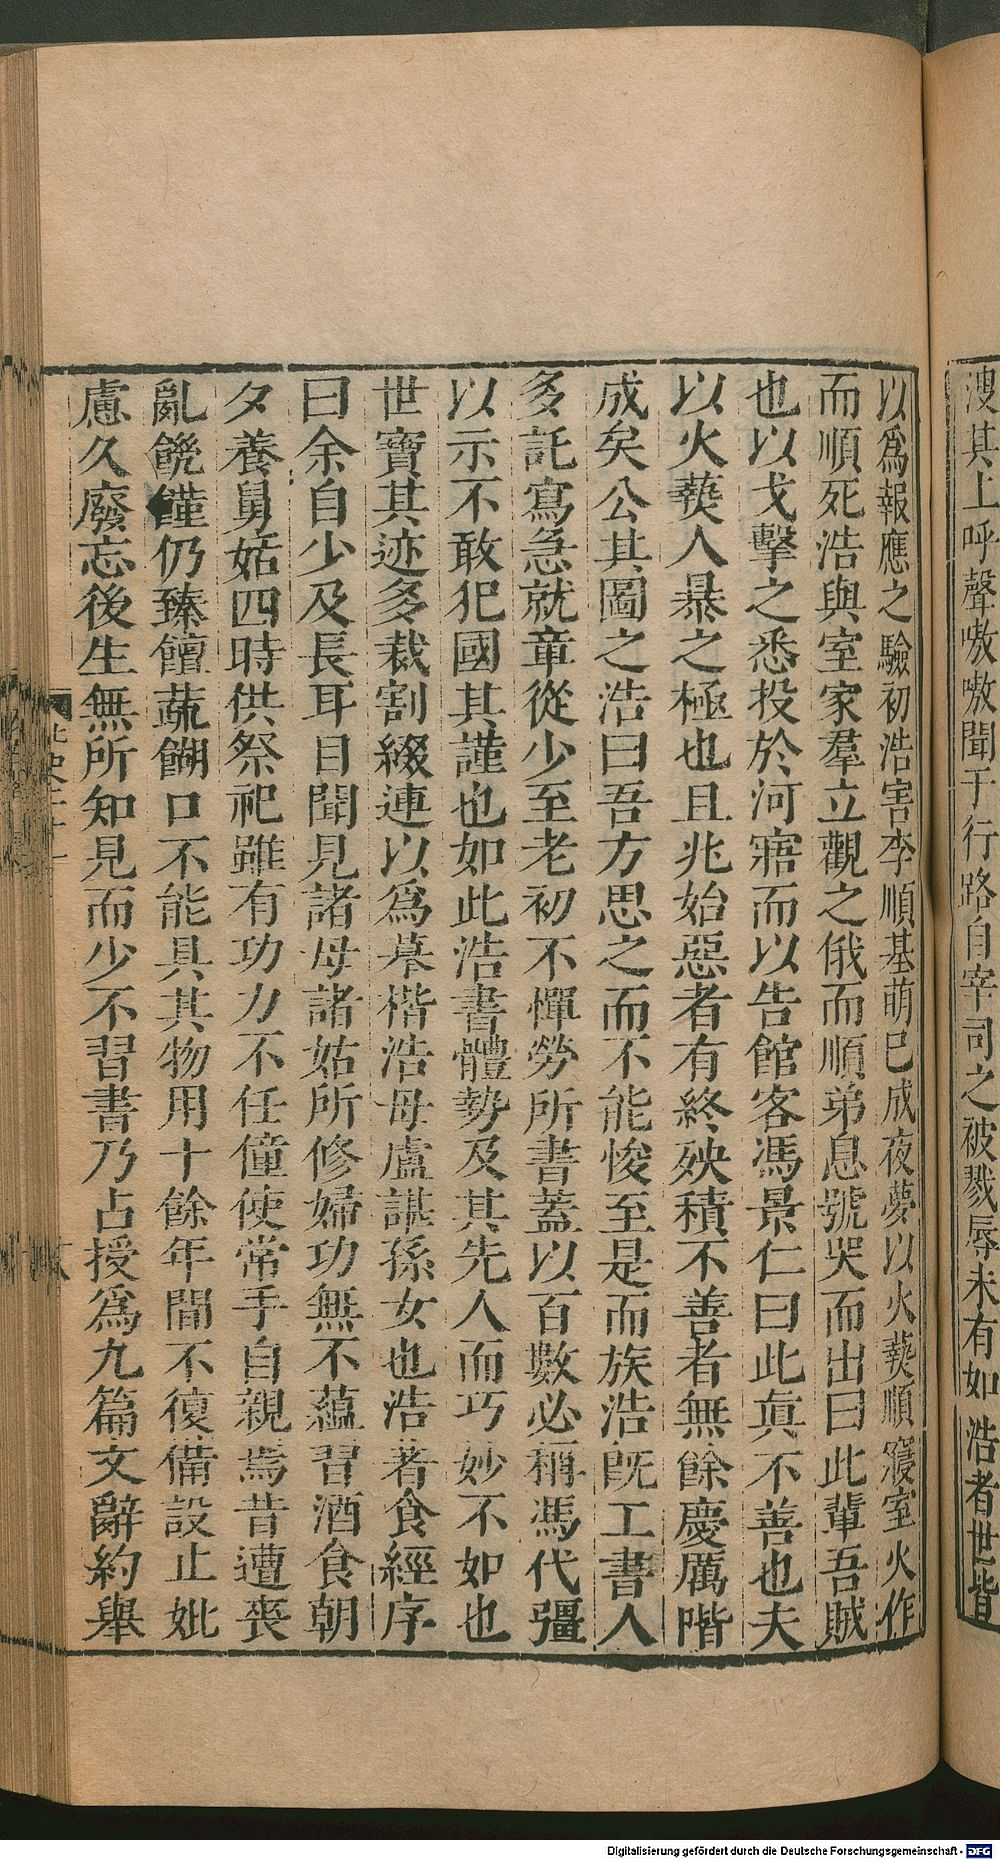 溲其上呼聲嗷嗷聞于行路自宰司之被戮辱未有如浩者世皆
以爲報應之驗初浩害李順基萌已成夜夢以火爇順寢室火作
而順死浩與室家羣立觀之俄而順弟息號哭而出曰此輩吾賊
也以戈擊之悉投於河寤而以告館客馮景仁曰此眞不善也夫
以火爇人暴之極也且兆始惡者有終殃積不善者無餘慶厲階
成矣公其圖之浩曰吾方思之而不能悛至是而族浩既工書人
多託寫急就章從少至老初不憚勞所書蓋以百數必稱馮代彊
以示不敢犯國其謹也如此浩書體勢及其先人而巧妙不如也
世寶其迹多裁割綴連以爲摹楷浩母盧諶孫女也浩著食經序
曰余自少及長耳目聞見諸母諸姑所修婦功無不蘊習酒食朝
夕養舅姑四時供祭祀雖有功力不任僮使常手自親焉昔遭喪
亂饑饉仍臻饘蔬餬口不能具其物用十餘年間不復備設止妣
慮久廢忘後生無所知見而少不習書乃占授爲九篇文辭約舉
北史二十一
十八
Digitalisierung gefördert durch die Deutsche Forschungsgemeinschaft - DFG